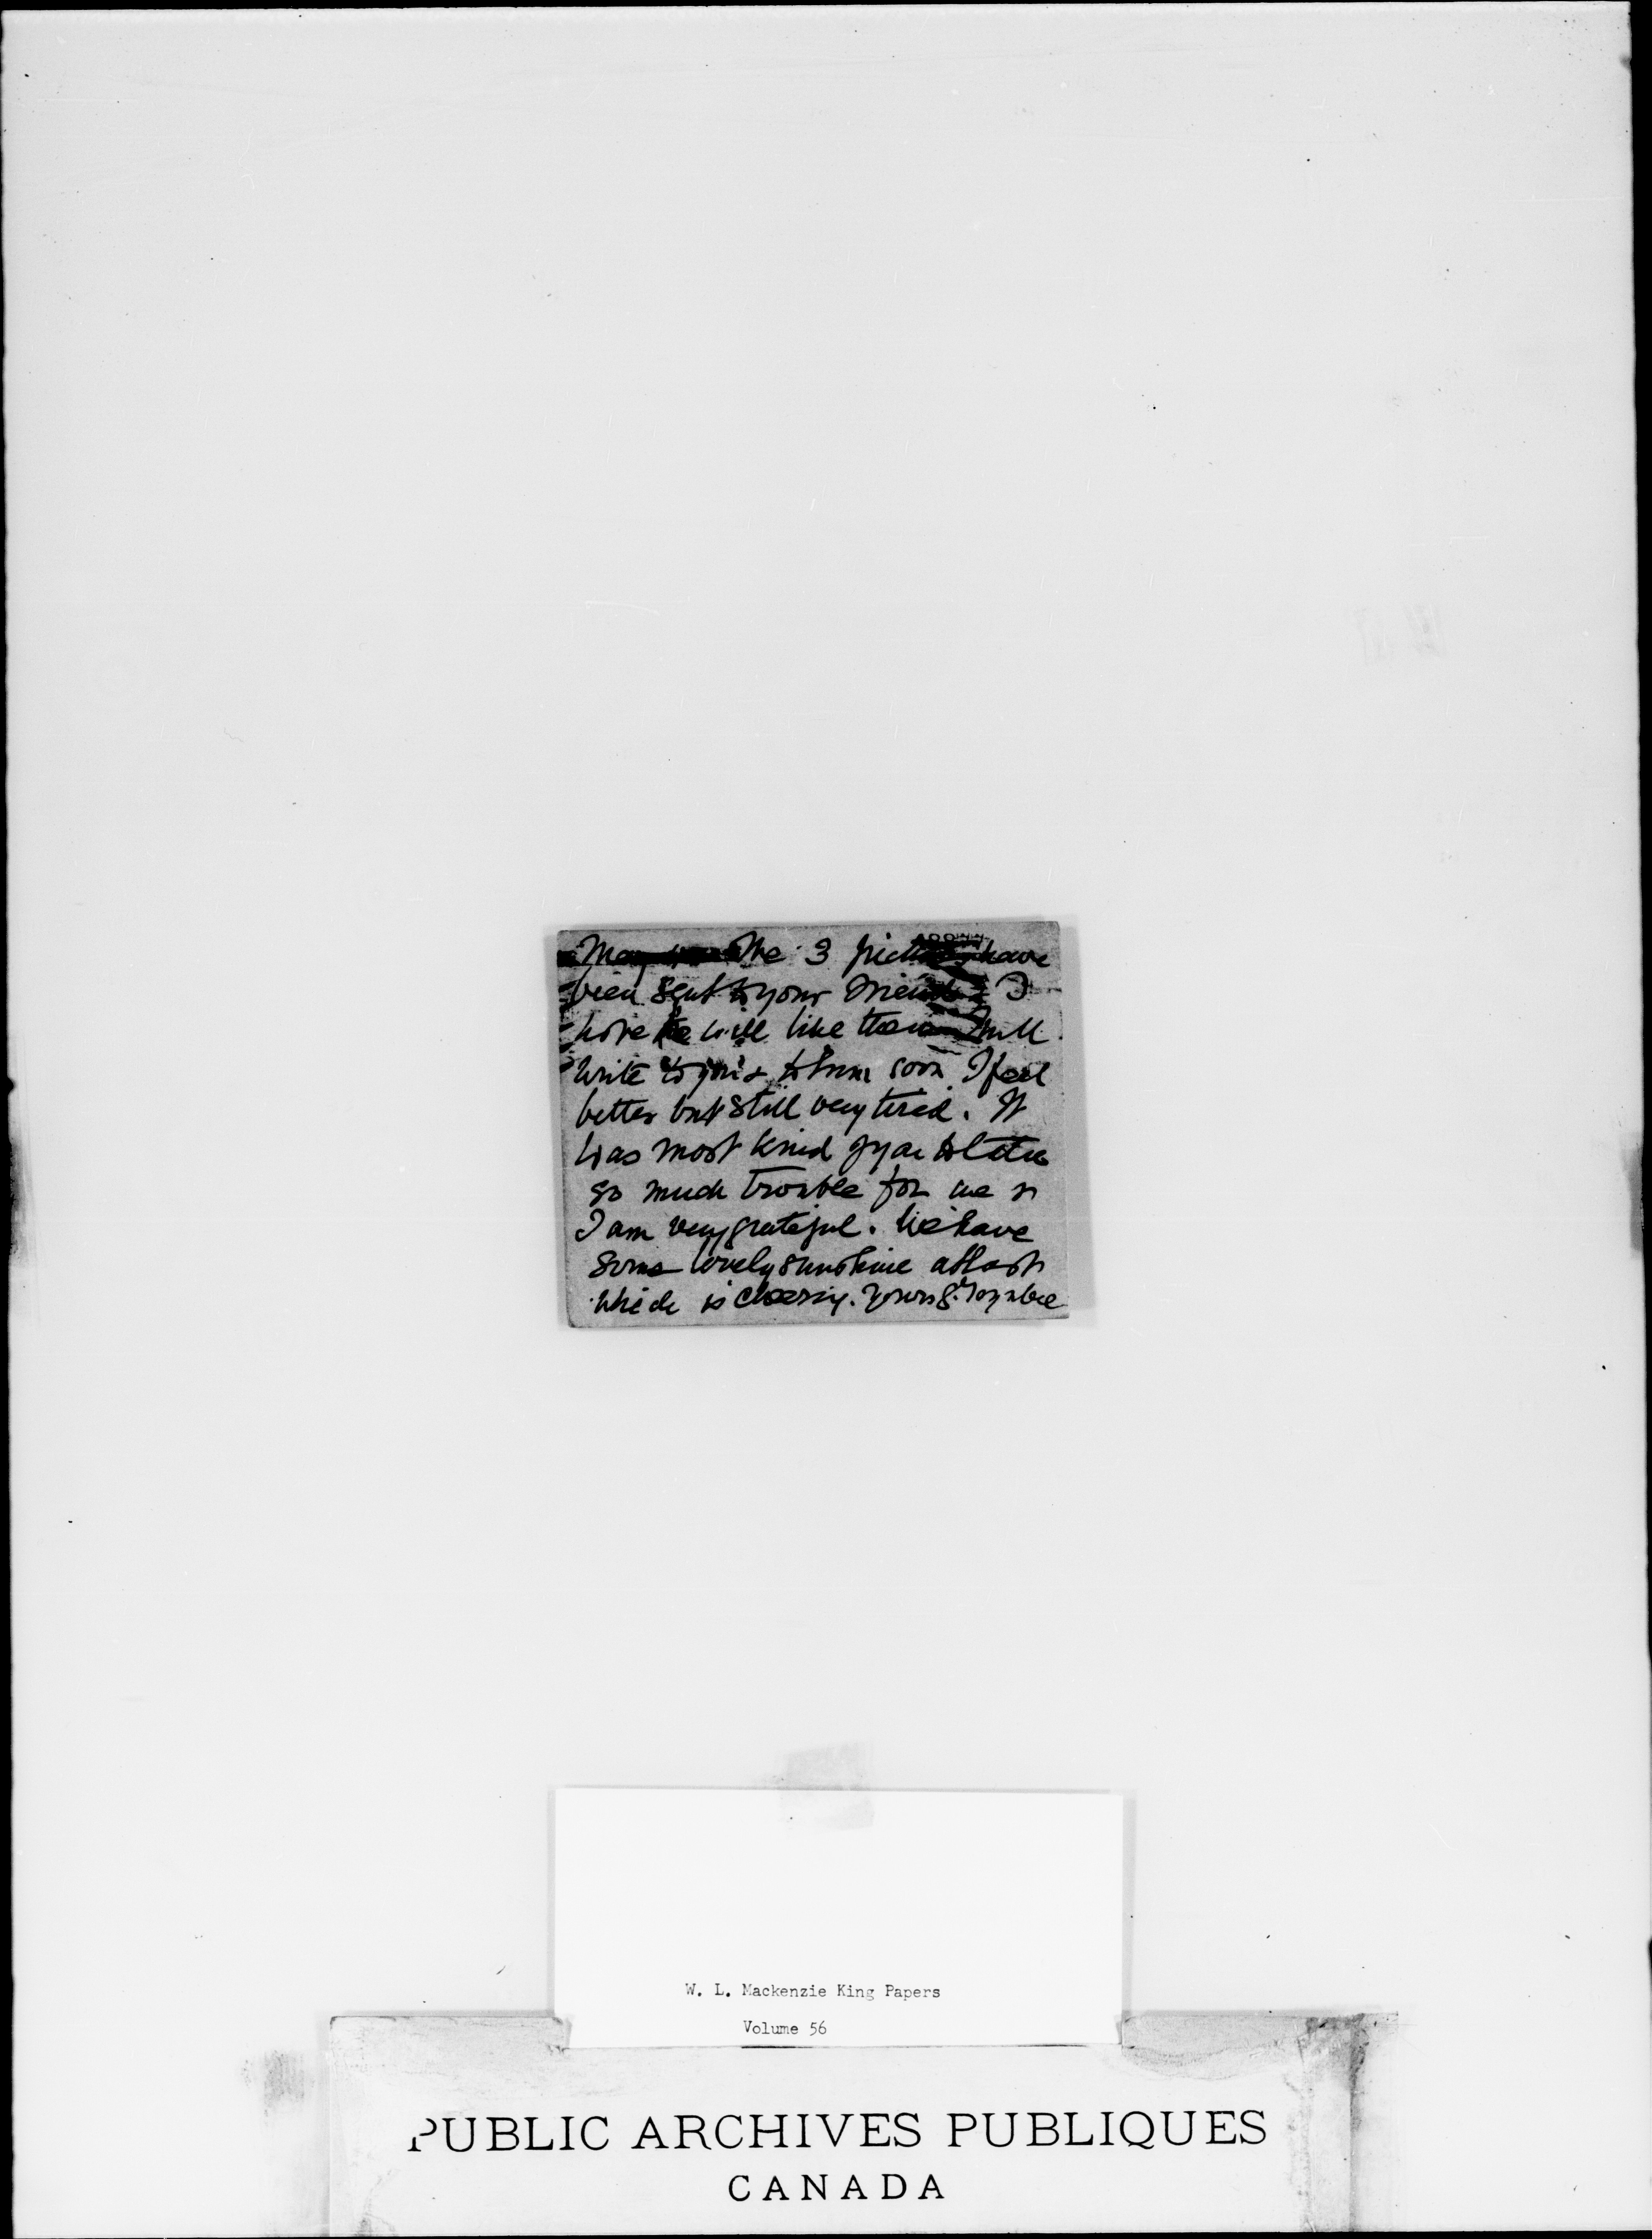 May The 3 pictures have
been sent to your friend & I
hope he will like them I will
write to you & to him soon I feel
better but still very tired. It
was most kind of you to take
so much trouble for me &
I am very grateful. We have
some lovely sunshine at last
which is cheery. Yours G. Toynbee
W. L. Mackenzie King Papers
Volume 56
PUBLIC ARCHIVES PUBLIQUES
CANADA